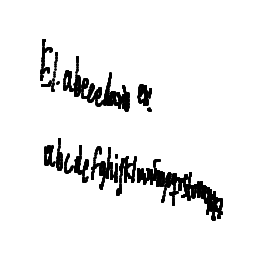 El abecedario es:
abcdefghijklmnñopqrstuvwxyz